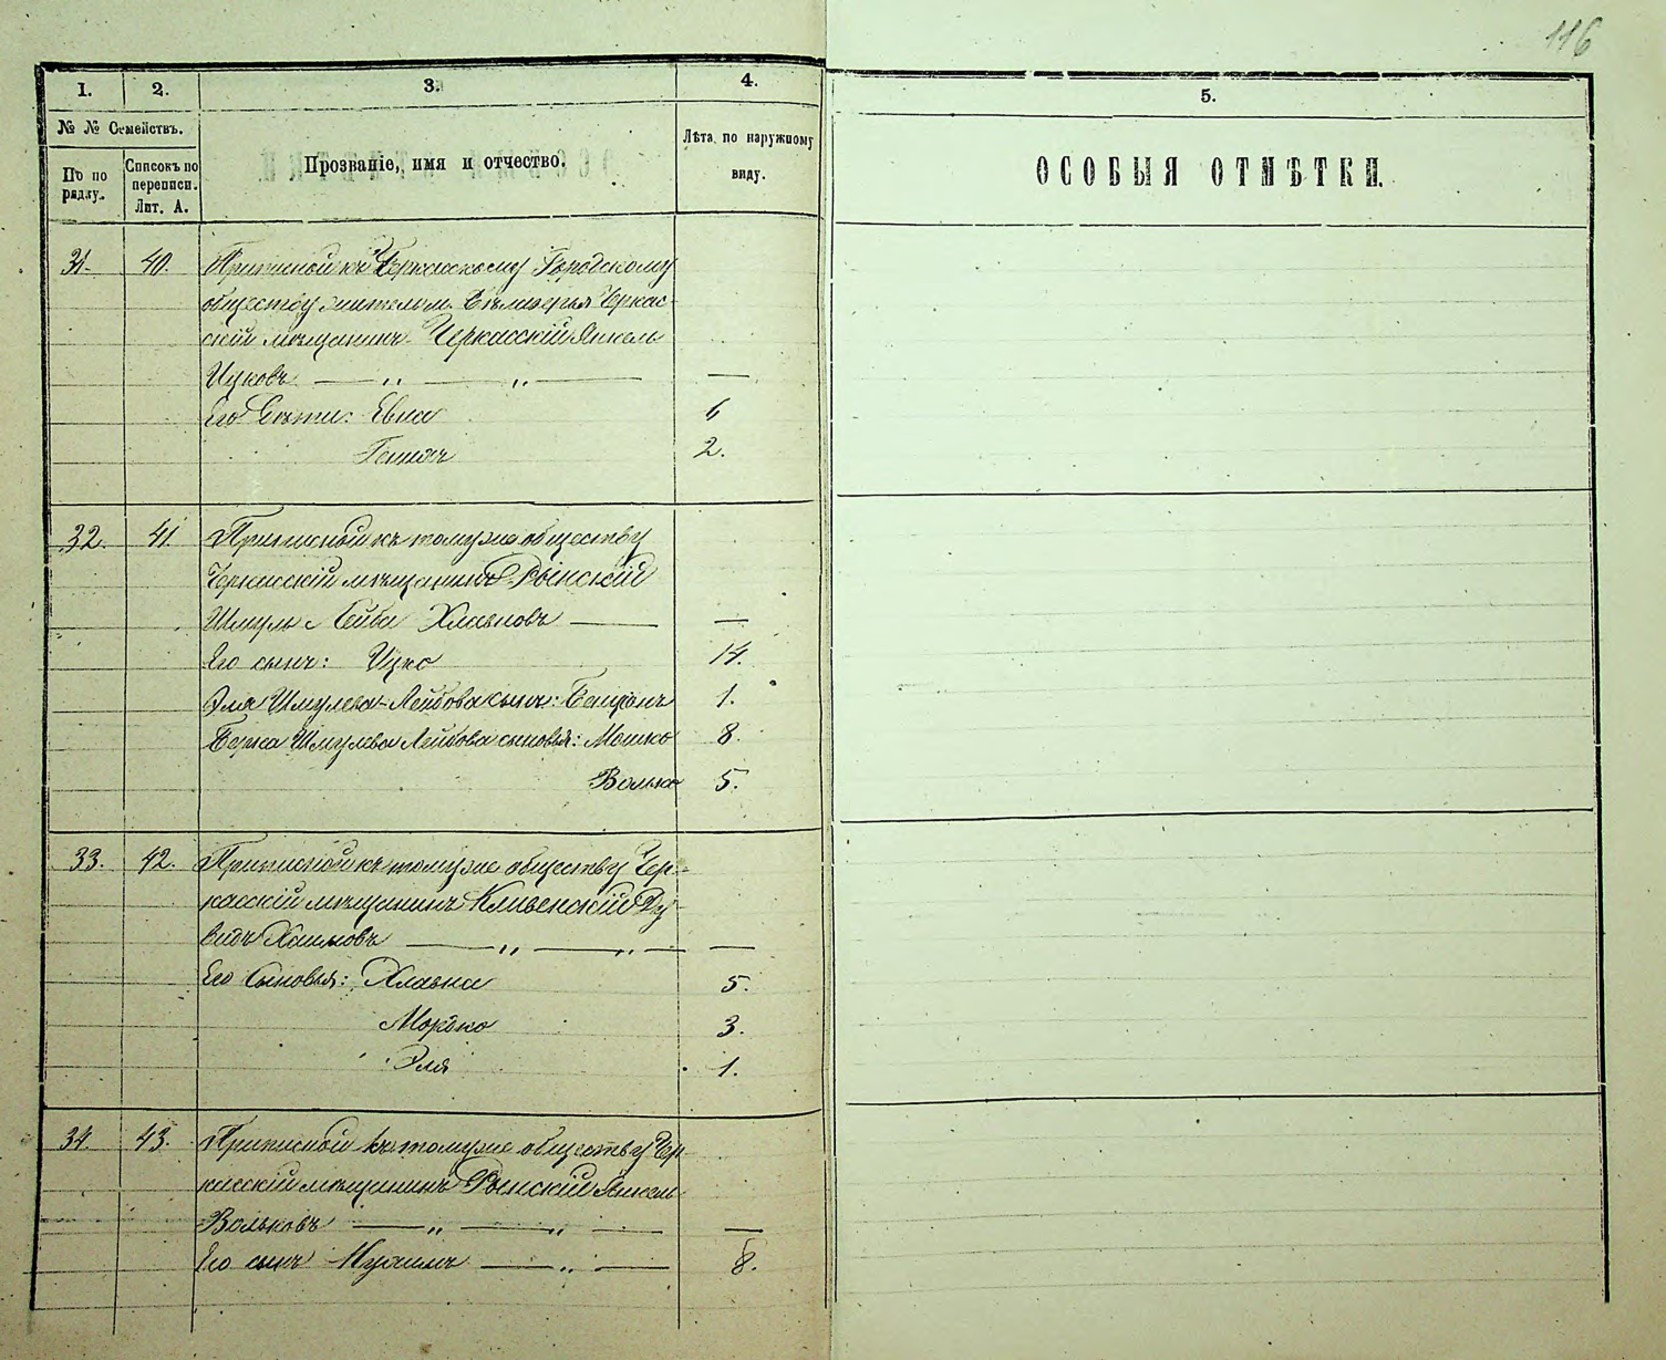 116
1. 2. 3. 4. 5.
№ № Семействъ.
По по рядку.
Списокъ по переписи. Лит. А.
Прозваніе, имя и отчество.
Лѣта по наружному виду.
ОСОБЫЯ ОТМѢТКИ.
31. 40. Приписной къ Черкасскому Городскому
обществу жителъ м. Черкас-
скій мѣщанинъ Черкасскій Янкель
Ицковъ — „ — „ — —
Его дѣти: Евна 6
Геннохъ 2.
32. 41. Приписной къ томуже обществу
Черкасскій мѣщанинъ Рынскій
Шмуль Лейба Хлавновъ — —
Его сынъ: Ицко 14.
Эля Шмулева-Лейбова сынъ: Бенціонъ 1.
Берка Шмулева Лейбова сыновья: Мошко 8.
Волько 5.
33. 42. Приписной къ томуже обществу Чер-
касскій мѣщанинъ Кливенскій Ду-
видъ Хаимовъ — „ — „ — —
Его Сыновья: Хлавна 5.
Мордко 3.
Эля 1.
34. 43. Приписной къ томуже обществу Чер-
касскій мѣщанинъ Рынскій Янкель
Вольковъ — „ — „ — —
Его сынъ Нухимъ — „ — 8.